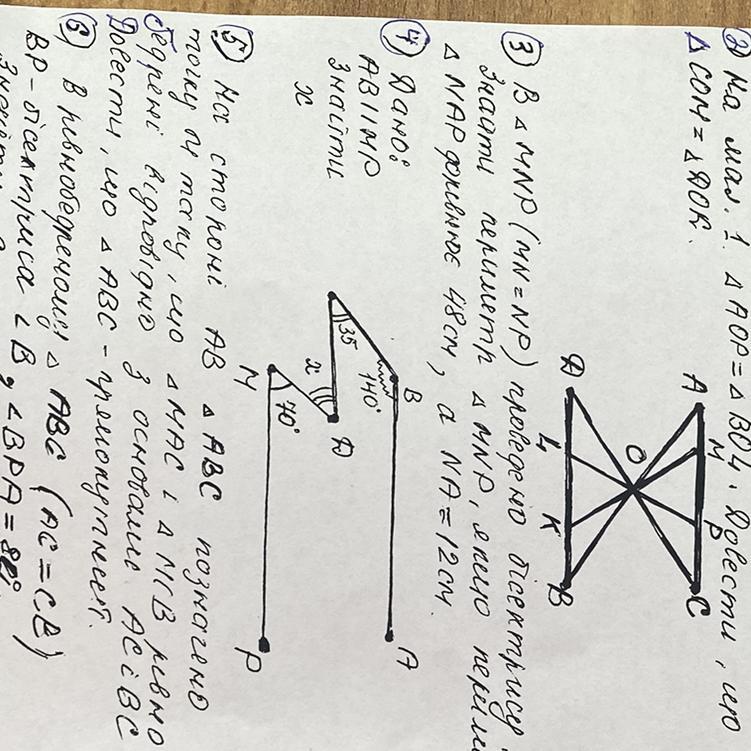 ② На мал. 1. △AOP = △BOL. Довести, що
△COM = △DOK.
A
M
P
C
O
D
L
K
B
③ В △MNP (MN = NP) проведено бісектрису
Знайти периметр △MNP, якщо
△NAP дорівнює 48см, а NA = 12см.
④ Дано:
AB || MP
Знайти
x
B
A
140°
35
x
D
M
70°
P
⑤ На стороні AB △ABC позначено
точку M таку, що △MAC і △MCB рівно
бедрені відповідно з основами AC і BC
Довести, що △ABC - прямокутний.
⑥ В рівнобедреному △ABC (AC = CB)
BP - бісектриса ∠B, ∠BPA =